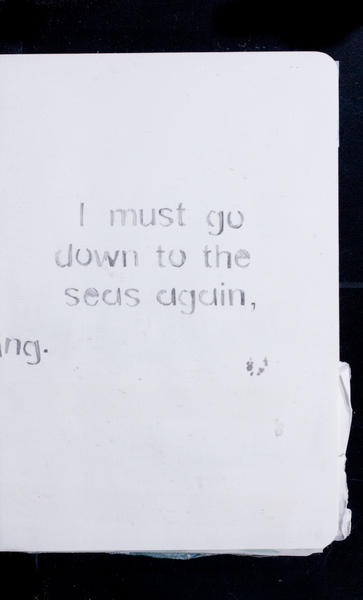 I must go
down to the
seas again,
ing.